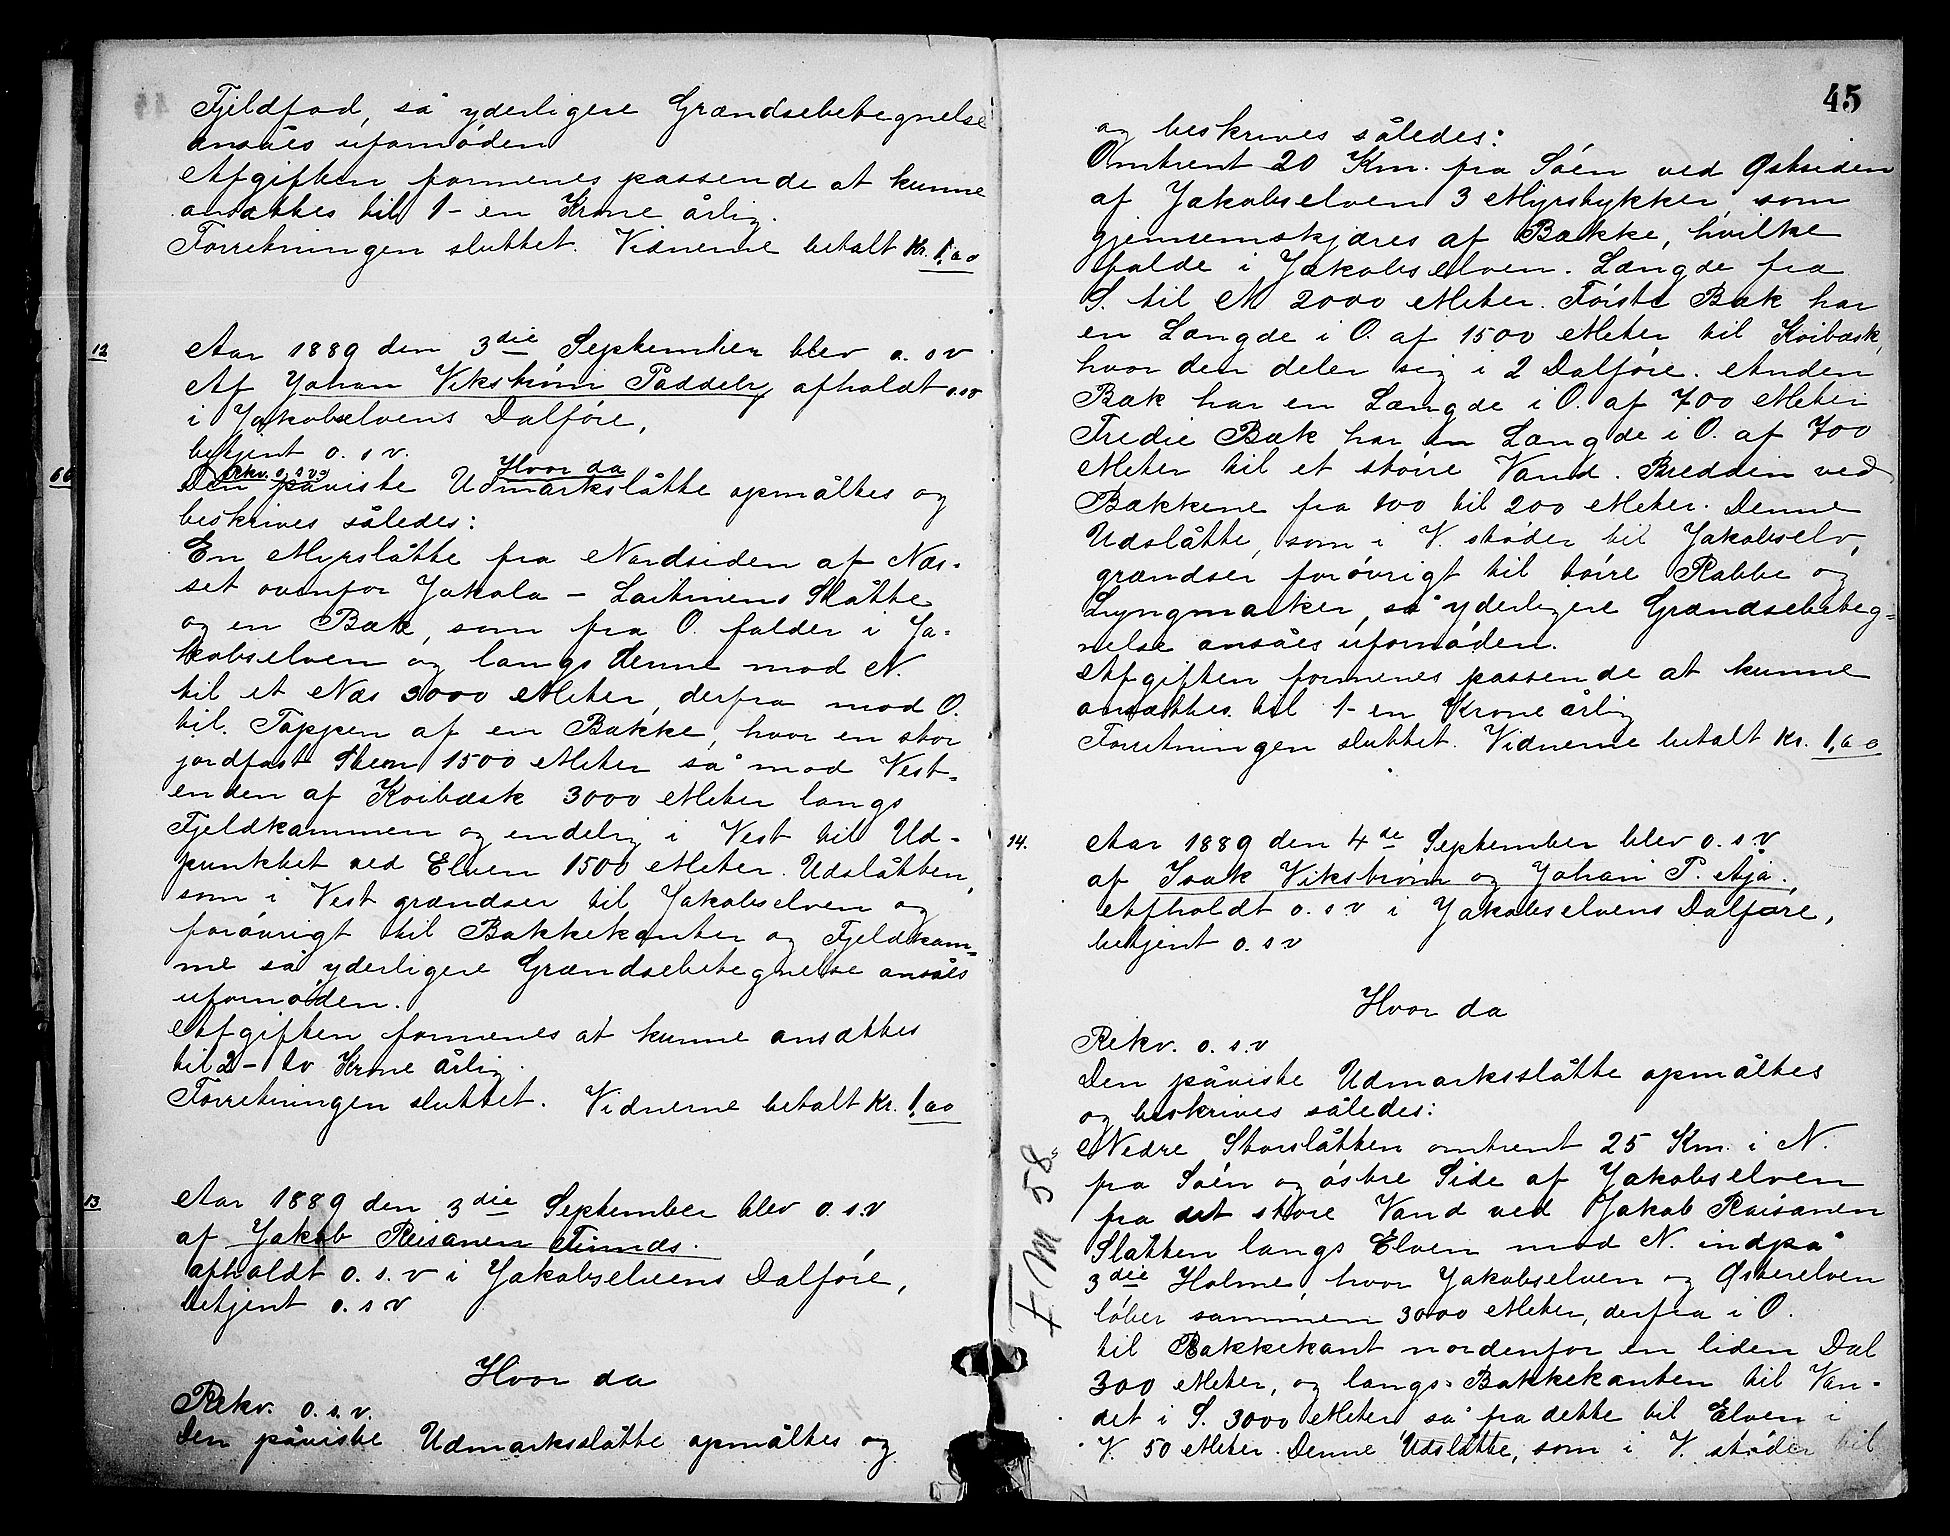 Fjeldfod, så yderligere Grændsebetegnelse
ansåes ufornöden
Afgiften formenes passende at kunne
ansættes til 1 - en Krone årlig.
Forretningen sluttet. Vidnerne betalt Kr. 1,60
12 Aar 1889 den 3die September blev o. s v
Af Johan Vikström Paddely afholdt o.sv
i Jakobselvens Dalföre,
betjent o. s v.
Rekv. o. s v. Hvor da
66 Den påviste Udmarkslåtte opmåltes og
beskrives således:
En Myrslåtte fra Nordsiden af Næs-
set ovenfor Jakola - Laitinens Slåtte
og en Bæk, som fra O. falder i Ja-
kobselven og langs denne mod N.
til et Næs 3000 Meter, derfra mod O.
til Toppen af en Bakke, hvor en stor
jordfast Sten 1500 Meter så mod Vest-
enden af Koibæsk 3000 Meter langs
Fjeldkammen og endelig i Vest til Ud-
punktet ved Elven 1500 Meter. Udslåtten,
som i Vest grændser til Jakobselven og
forövrigt til Bakkekanter og Fjeldkam-
me så yderligere Grændsebetegnelse ansåes
ufornöden.
Afgiften formenes at kunne ansættes
til 2 - to Krone årlig.
Forretningen sluttet. Vidnerne betalt Kr. 1,60
13 Aar 1889 den 3die September blev o. s.v
af Jakob Reisanen Tumas.
afholdt o. s. v i Jakobselvens Dalföre,
betjent o. s v
Hvor da
Rekv. o. s. v.
Den påviste Udmarksslåtte opmåltes og
45
og beskrives således:
Omtrent 20 Km. fra Söen ved Østsiden
af Jakobselven 3 Myrstykker som
gjennemskjæres af Bække, hvilke
falde i Jakobselven. Længde fra
S. til N 2000 Meter. Förste Bæk har
en Længde i O. af 1500 Meter til Koibæsk,
hvor den deler sig i 2 Dalföre. Anden
Bæk har en Længde i O. af 700 Meter
Tredie Bæk har en Længde i O. af 700
Meter til et större Vand. Bredden ved
Bækkene fra 100 til 200 Meter. Denne
Udslåtte, som i V. stöder til Jakobselv,
grændser forövrigt til törre Rabbe og
Lyngmarker, så yderligere Grændsebeteg-
nelse ansåes ufornöden.
Afgiften formenes passende at kunne
ansættes til 1 - en Krone årlig
Forretningen sluttet. Vidnerne betalt Kr. 1,60
14. Aar 1889 den 4de September blev o. s.v
af Isak Vikström og Johan P. Aja.
Afholdt o. s v i Jakobselvens Dalføre,
betjent o. s v
Hvor da
Rekv. o. s.v
Den påviste Udmarksslåtte opmåltes
og beskrives således:
Nedre Storslåtten omtrent 25 Km. i N.
fra Söen og östre Side af Jakobselven
fra det store Vand ved Jakob Raisanen
Slåtten langs Elven mod N. indpå
3die Holme, hvor Jakobselven og Østerelven
löber sammen 3000 Meter, derfra i O.
til Bakkekant nordenfor en liden Dal
300 Meter, og langs Bakkekanten til Van-
det i S. 3000 Meter så fra dette til Elven i
V. 50 Meter. Denne Udslåtte, som i V. stöder til